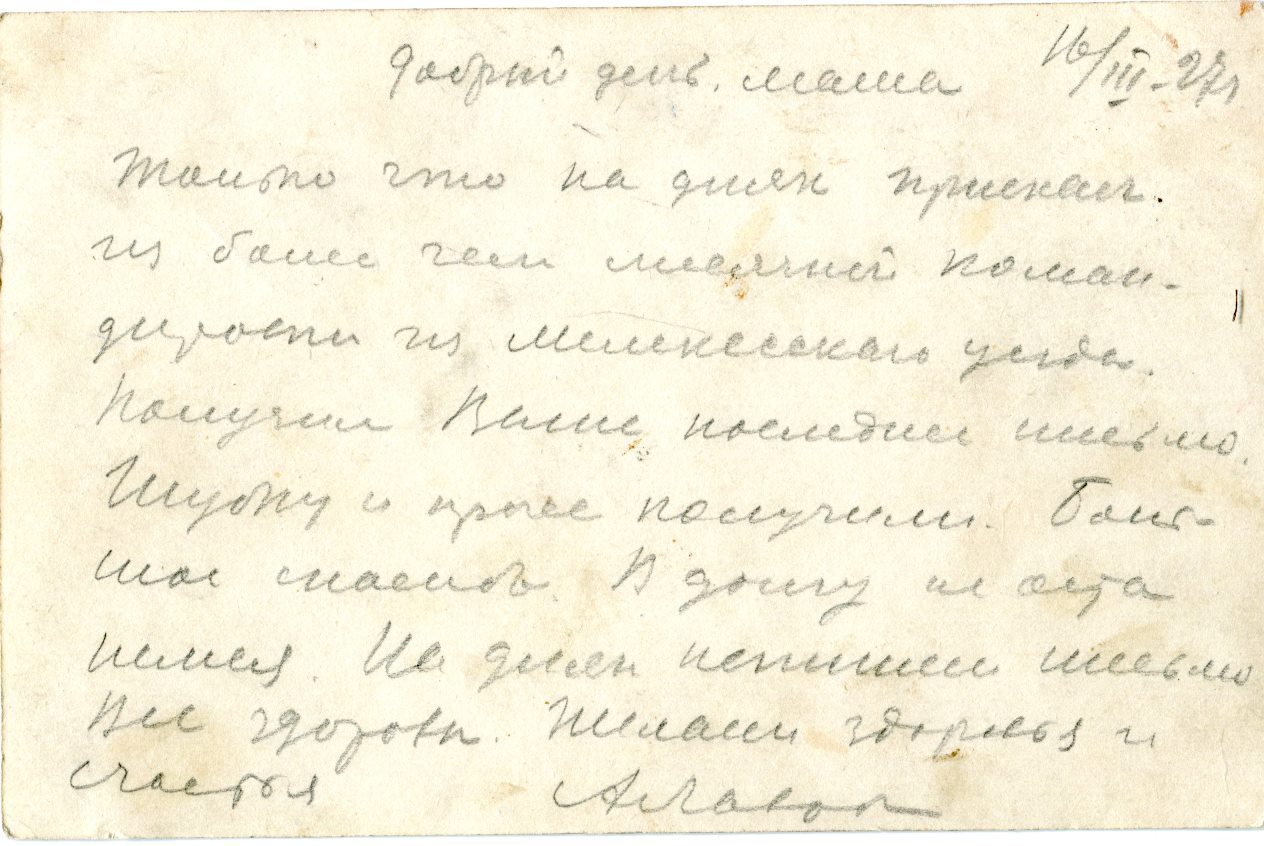 Добрый день, Маша 16/III-27г
Только что на днях приехал
из более чем месячной коман-
дировки из Мелекесского уезда.
Получил Ваше последнее письмо.
Шубку и проче получили. Боль-
шое спасибо. В долгу не оста
немся. На днях напишем письмо
Все здоровы. Желаем здоровья и
счастья